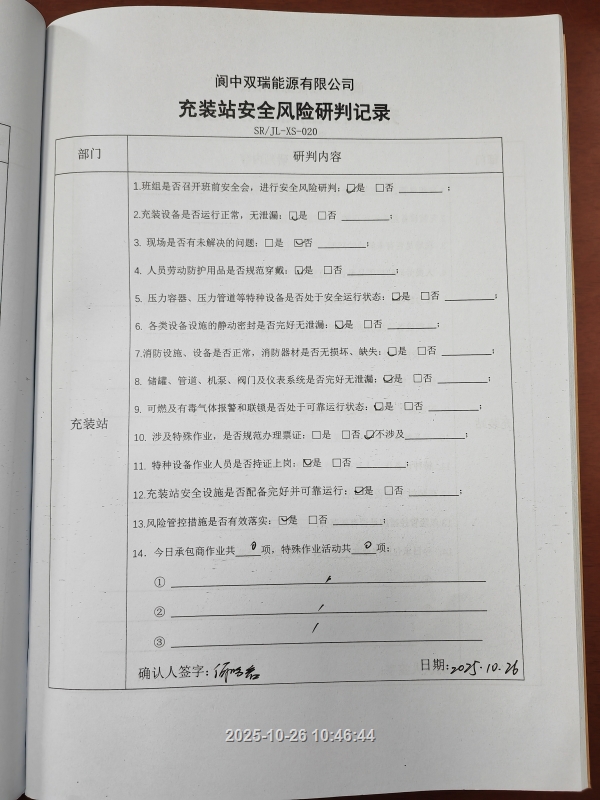 阆中双瑞能源有限公司
充装站安全风险研判记录
SR/JL-XS-020
部门 研判内容
1.班组是否召开班前安全会，进行安全风险研判：☑是 □否 ________ ；
2.充装设备是否运行正常，无泄漏：☑是 □否 ________；
3. 现场是否有未解决的问题：□是 ☑否 ________；
4. 人员劳动防护用品是否规范穿戴：☑是 □否 ________；
5. 压力容器、压力管道等特种设备是否处于安全运行状态：☑是 □否 ________；
6. 各类设备设施的静动密封是否完好无泄漏：☑是 □否 ________；
7.消防设施、设备是否正常，消防器材是否无损坏、缺失：☑是 □否 ________；
8. 储罐、管道、机泵、阀门及仪表系统是否完好无泄漏：☑是 □否 ________；
9. 可燃及有毒气体报警和联锁是否处于可靠运行状态：☑是 □否 ________；
充装站
10. 涉及特殊作业，是否规范办理票证：□是 □否 ☑不涉及________；
11. 特种设备作业人员是否持证上岗：☑是 □否 ________；
12.充装站安全设施是否配备完好并可靠运行：☑是 □否 ________；
13.风险管控措施是否有效落实：☑是 □否 ________；
14. 今日承包商作业共 0 项，特殊作业活动共 0 项：
① /
② /
③ /
确认人签字： 日期：2025.10.26
2025-10-26 10:46:44